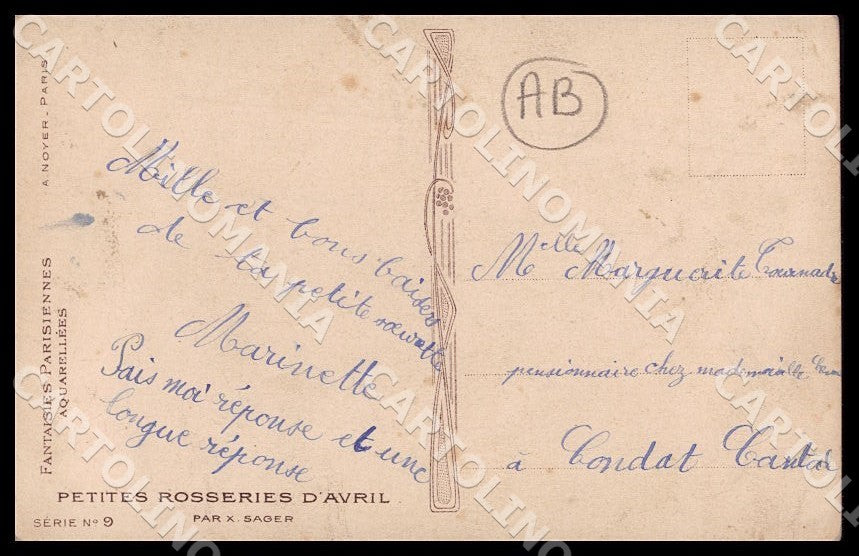 A. NOYER - PARIS
FANTAISIES PARISIENNES
AQUARELLÉES
PETITES ROSSERIES D'AVRIL
PAR X. SAGER
SÉRIE No 9
Mille et bons baisers
de ta petite sœurette
Marinette
Fais moi réponse et une
longue réponse
AB
Mlle Marguerite
pensionnaire chez mademoiselle
à Condat Cantal
CARTOLINOMANIA